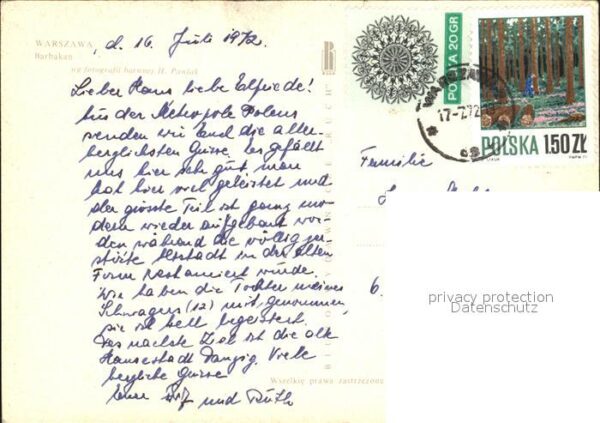 WARSZAWA
Barbakan
wg fotografii barwnej H.
d. 16. Juli 1972.
Lieber Hans liebe Elfriede!
Aus der Metropole Polens
senden wir Euch die aller-
herzlichsten Grüsse. Es gefällt
uns hier sehr gut, man
hat hier viel geleistet und
der grösste Teil ist ganz mo-
dern wieder aufgebaut wor-
den während die völlig zer-
störte Altstadt in der alten
Form restauriert wurde.
Wir haben die Tochter meines
Schwagers (12) mit genommen,
sie ist hell begeistert.
Das nächste Ziel ist die alte
Hansestadt Danzig. Viele
herzliche Grüsse
Eure und Ruth
BIURO WYDAWNICZE RUCH
Wszelkie prawa zastrzeżone
POLSKA 20 GR
POLSKA 1.50 ZŁ
WARSZAWA
17-7.72
Familie
6.
privacy protection
Datenschutz